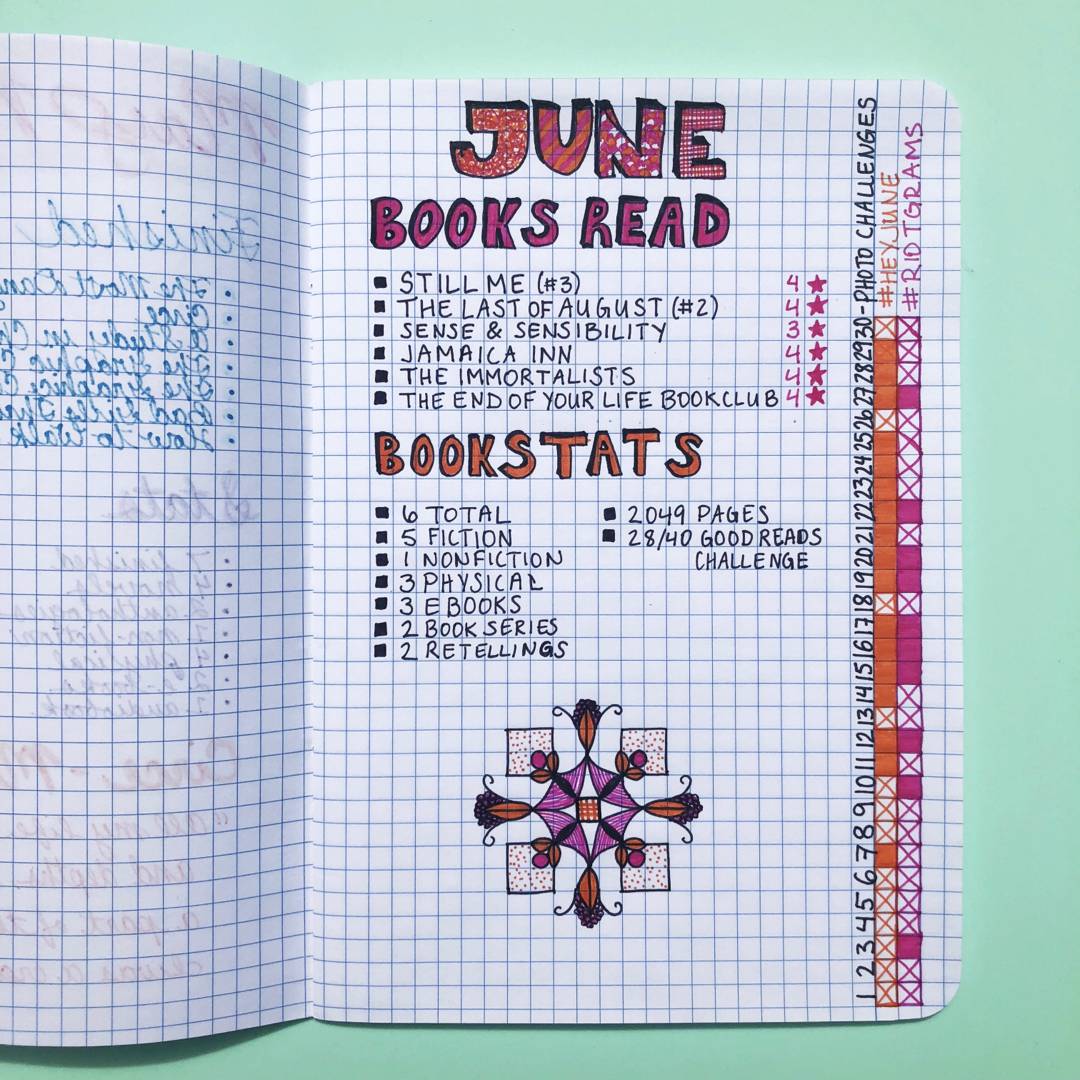 JUNE
BOOKS READ
STILL ME (#3) 4★
THE LAST OF AUGUST (#2) 4★
SENSE & SENSIBILITY 3★
JAMAICA INN 4★
THE IMMORTALISTS 4★
THE END OF YOUR LIFE BOOKCLUB 4★
BOOKSTATS
6 TOTAL
5 FICTION
1 NONFICTION
3 PHYSICAL
3 EBOOKS
2 BOOK SERIES
2 RETELLINGS
2049 PAGES
28/40 GOODREADS
CHALLENGE
1 2 3 4 5 6 7 8 9 10 11 12 13 14 15 16 17 18 19 20 21 22 23 24 25 26 27 28 29 30 - PHOTO CHALLENGES
#HEYJUNE
#RIOTGRAMS
Finished
Once
How to Walk
Stats
7 finished
4 novels